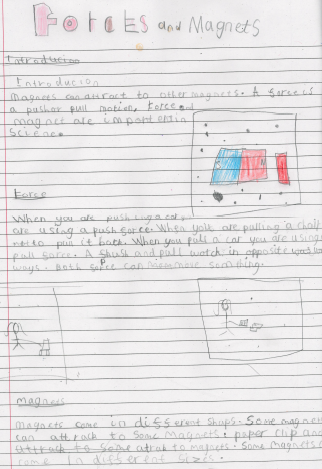 Forces and Magnets
Introducion
Introducion
Magnets can attract to other magnets. A force is
a push or pull motion, Force and
magnet are important in
science.
Force
When you are pushing a car,
are using a push force. When you are pulling a chair
to pull it back. When you pull a car you are using
pull force. A push and pull work in opposite
ways. Both force can move something.
magnets
Magnets come in different shaps. Some magnet
can attrak to some magnets. paper clip and
attrak to some atrak to magnets. Some magnets
come in different sizes.